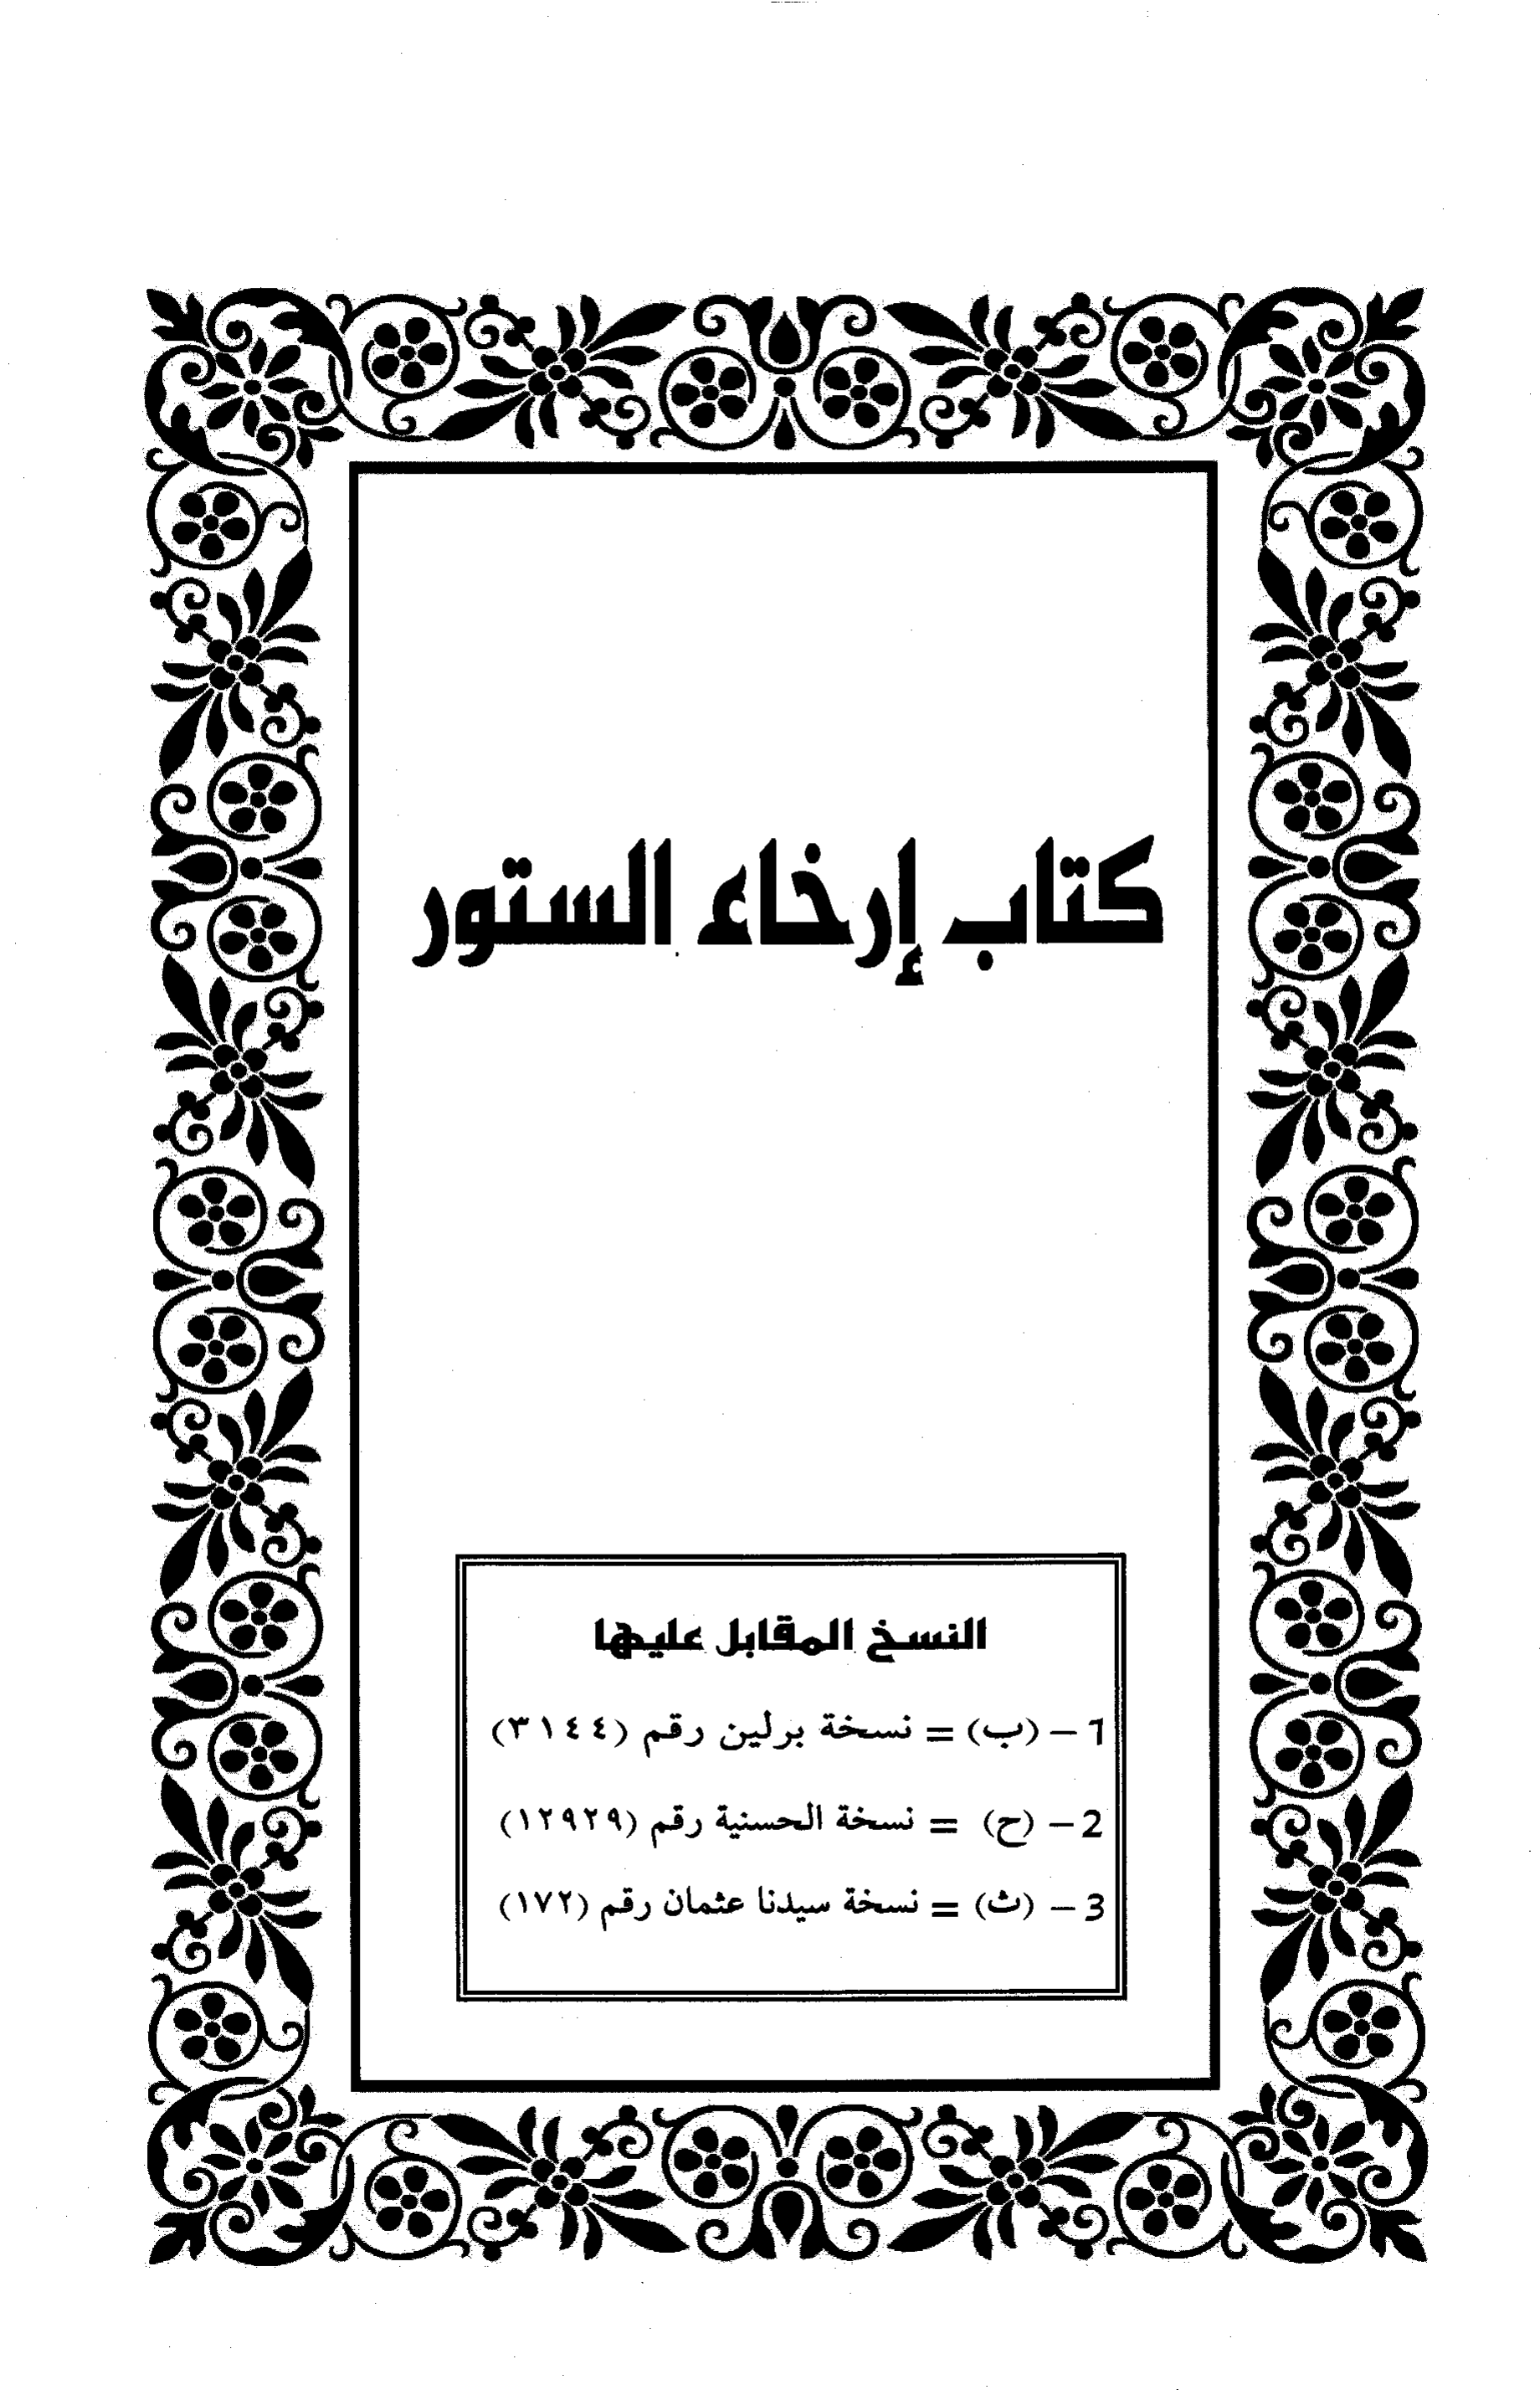 كتاب إرخاء الستور
النسخ المقابل عليها
1 - (ب) = نسخة برلين رقم (٣١٤٤)
2 - (ح) = نسخة الحسنية رقم (١٢٩٢٩)
3 - (ث) = نسخة سيدنا عثمان رقم (١٧٢)